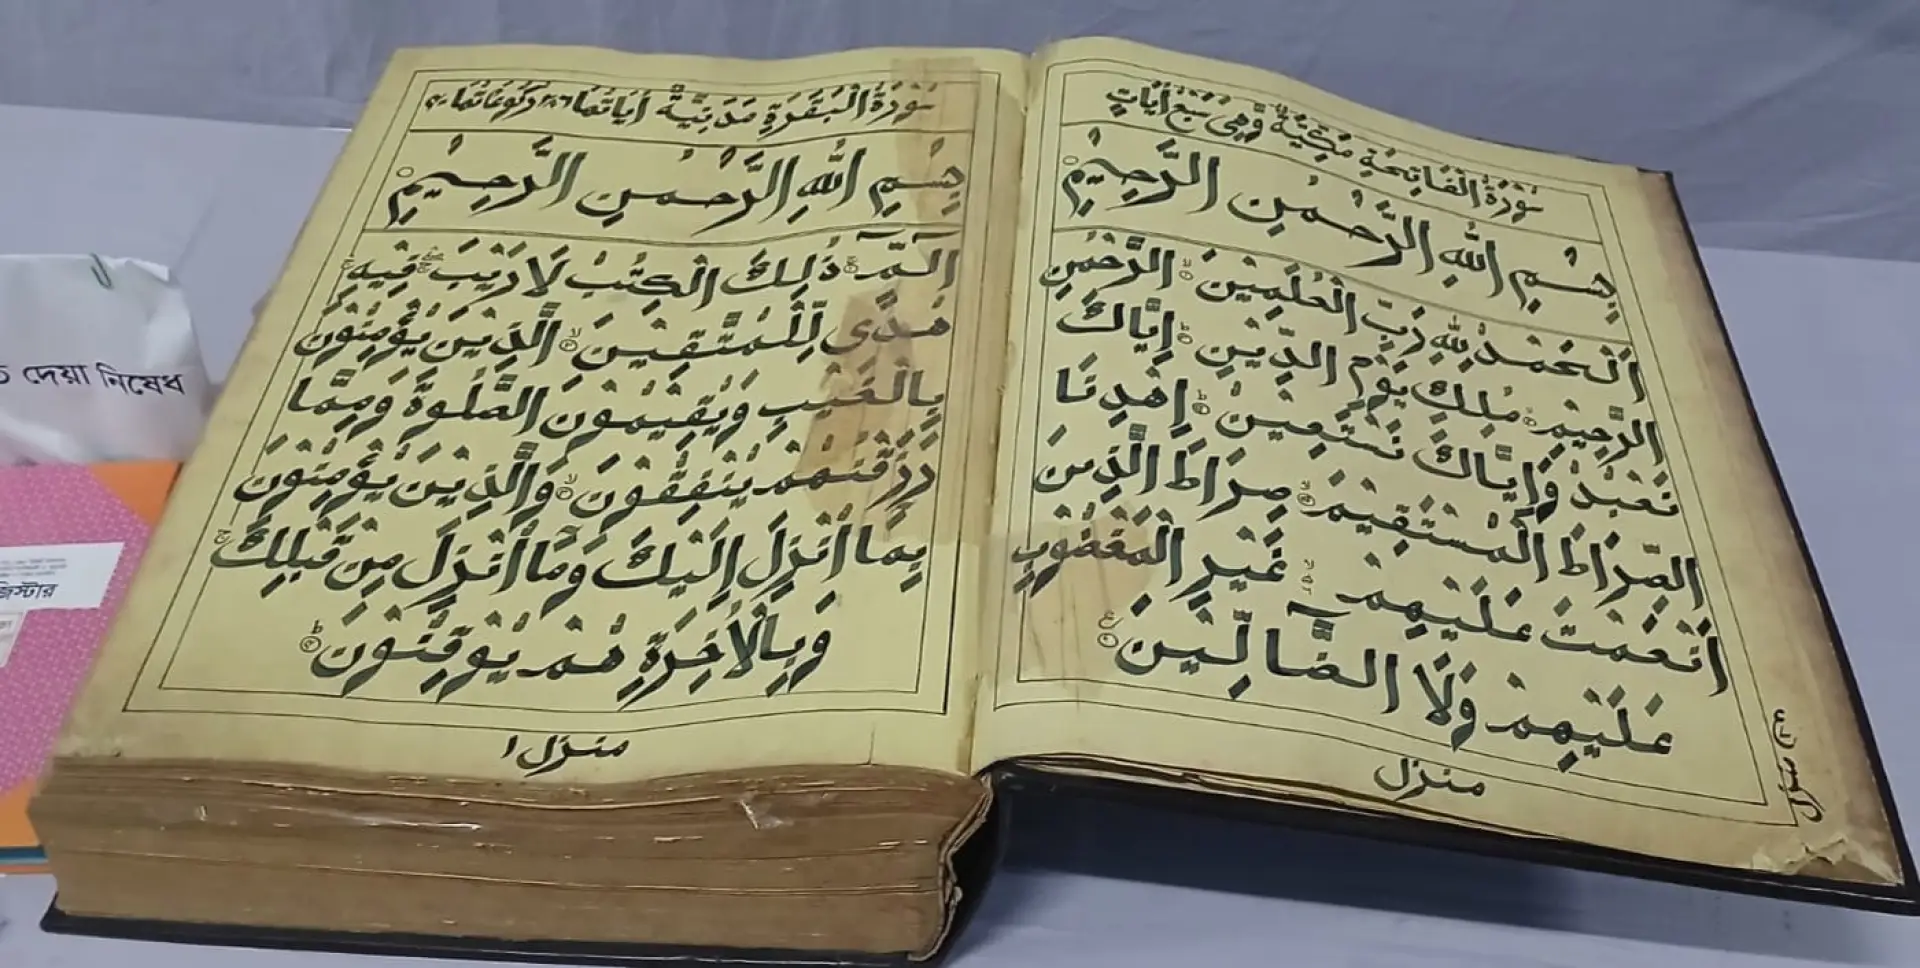 سُوْرَةُ الْفَاتِحَةِ مَكِّيَّةٌ وَّهِيَ سَبْعُ اٰيَاتٍ
بِسْمِ اللّٰهِ الرَّحْمٰنِ الرَّحِيْمِ
اَلْحَمْدُ لِلّٰهِ رَبِّ الْعٰلَمِيْنَ الرَّحْمٰنِ
الرَّحِيْمِ مٰلِكِ يَوْمِ الدِّيْنِ اِيَّاكَ
نَعْبُدُ وَاِيَّاكَ نَسْتَعِيْنُ اِهْدِنَا
الصِّرَاطَ الْمُسْتَقِيْمَ صِرَاطَ الَّذِيْنَ
اَنْعَمْتَ عَلَيْهِمْ غَيْرِ الْمَغْضُوْبِ
عَلَيْهِمْ وَلَا الضَّآلِّيْنَ
منزل
منزل
سُوْرَةُ الْبَقَرَةِ مَدَنِيَّةٌ اٰيَاتُهَا ٢٨٦ رُكُوْعَاتُهَا ٤٠
بِسْمِ اللّٰهِ الرَّحْمٰنِ الرَّحِيْمِ
الٓمّٓ ذٰلِكَ الْكِتٰبُ لَا رَيْبَ فِيْهِ
هُدًى لِّلْمُتَّقِيْنَ الَّذِيْنَ يُؤْمِنُوْنَ
بِالْغَيْبِ وَيُقِيْمُوْنَ الصَّلٰوةَ وَمِمَّا
رَزَقْنٰهُمْ يُنْفِقُوْنَ وَالَّذِيْنَ يُؤْمِنُوْنَ
بِمَا اُنْزِلَ اِلَيْكَ وَمَا اُنْزِلَ مِنْ قَبْلِكَ
وَبِالْاٰخِرَةِ هُمْ يُوْقِنُوْنَ
منزل ١
দেয়া নিষেধ